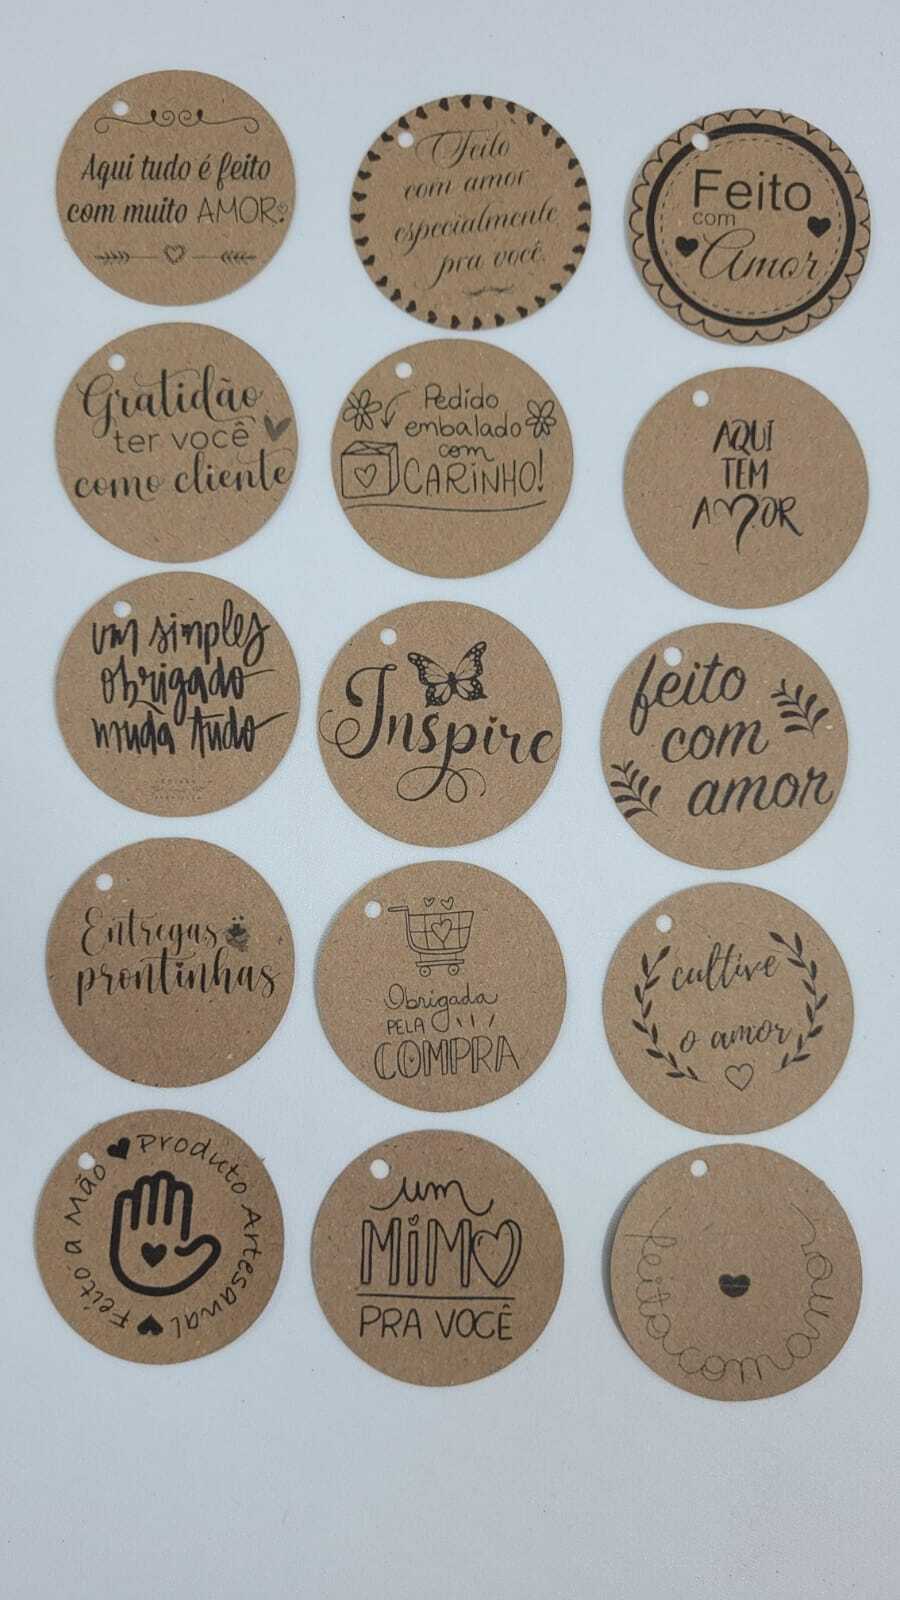 Aqui tudo é feito
com muito AMOR
Feito
com amor
especialmente
pra você.
Feito
com
Amor
Gratidão
ter você
como cliente
Pedido
embalado
com
CARINHO!
AQUI
TEM
AMOR
um simples
obrigado
muda tudo
Inspire
feito
com
amor
Entregas
prontinhas
Obrigada
PELA
COMPRA
cultive
o amor
Produto Artesanal
Feito a Mão
um
MiMO
PRA VOCÊ
feito com amor